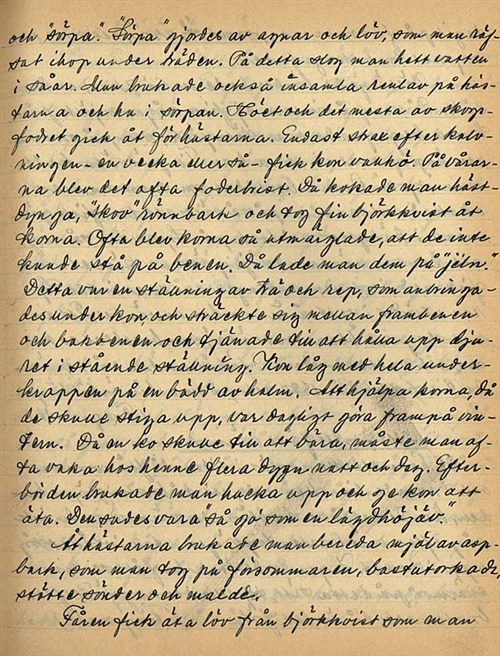 och "sörpa". "Sörpa" gjordes av agnar och löv, som man räf-
sat ihop under träden. På detta slog man hett vatten
i såar. Man brukade också insamla renlav på häs-
tarna och ha i sörpan. Höet och det mesta av skorp-
fodret gick åt för hästarna. Endast strax efter kalv-
ningen - en vecka eller så - fick kon vanhö. På vårar-
na blev det ofta foderbrist. Då kokade man häst-
dynga, "skov" rönnbark och tog fin björkkvist åt
korna. Ofta blev korna så utmärglade, att de inte
kunde stå på benen. Då lade man dem på
Detta var en ställning av trä och rep, som anbringa-
des under kon, och sträckte sig mellan frambenen
och bakbenen och tjänade till att hålla upp dju-
ret i stående ställning. Kon låg med hela under-
kroppen på en bädd av halm. Att hjälpa korna, då
de skulle stiga upp, var dagligt göra frampå vin-
tern. Då en ko skulle till att bära, måste man of-
ta vaka hos henne flera dygn natt och dag. Efter-
börden brukade man hacka upp och ge kon att
äta. Den sades vara "så go som en
Åt hästarna brukade man bereda mjöl av asp-
bark, som man tog på försommaren, bastutorkade,
stötte sönder och malde.
Fåren fick äta löv från björkkvist som man